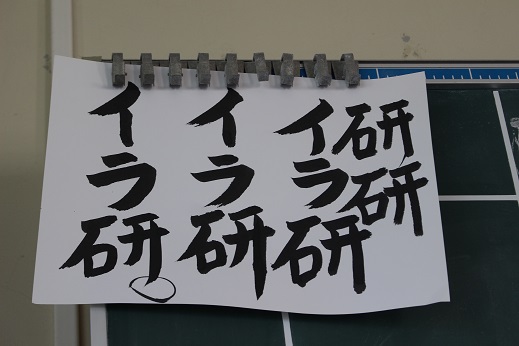 研研
イラ研
イラ研
イラ研